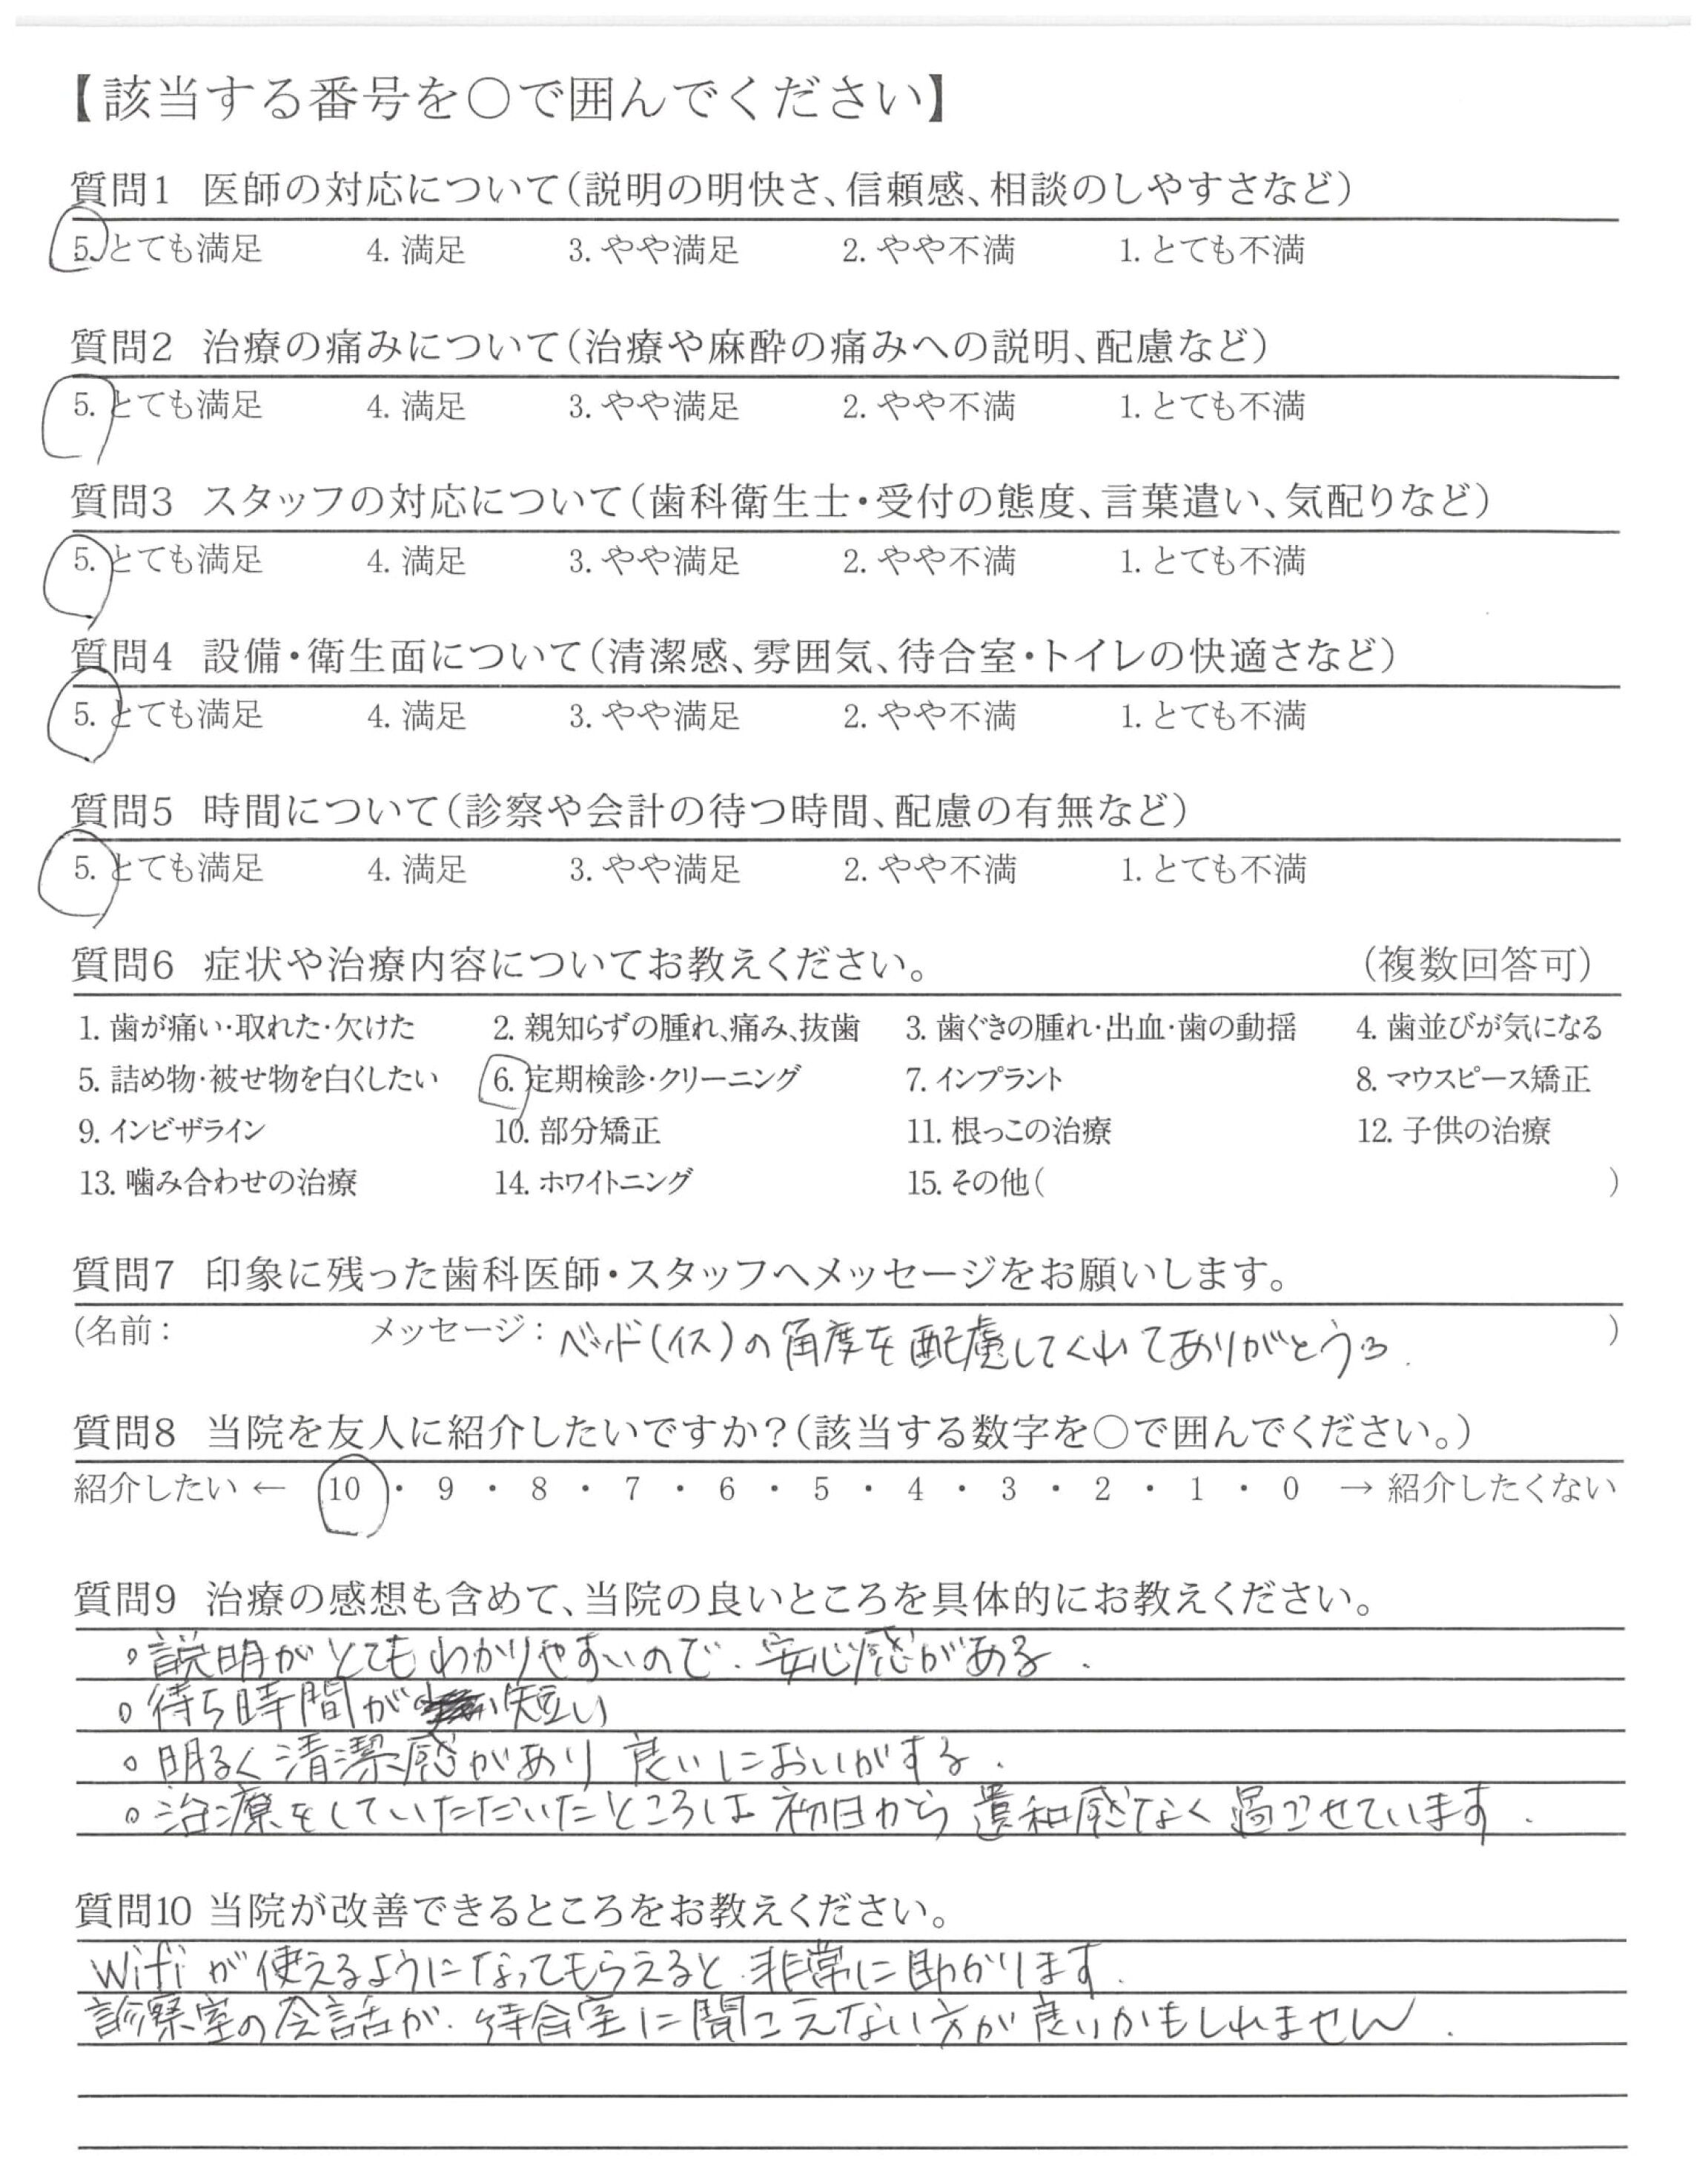 【該当する番号を○で囲んでください】
質問1 医師の対応について(説明の明快さ、信頼感、相談のしやすさなど)
5. とても満足 4. 満足 3. やや満足 2. やや不満 1. とても不満
質問2 治療の痛みについて(治療や麻酔の痛みへの説明、配慮など)
5. とても満足 4. 満足 3. やや満足 2. やや不満 1. とても不満
質問3 スタッフの対応について(歯科衛生士・受付の態度、言葉遣い、気配りなど)
5. とても満足 4. 満足 3. やや満足 2. やや不満 1. とても不満
質問4 設備・衛生面について(清潔感、雰囲気、待合室・トイレの快適さなど)
5. とても満足 4. 満足 3. やや満足 2. やや不満 1. とても不満
質問5 時間について(診察や会計の待つ時間、配慮の有無など)
5. とても満足 4. 満足 3. やや満足 2. やや不満 1. とても不満
質問6 症状や治療内容についてお教えください。 (複数回答可)
1. 歯が痛い・取れた・欠けた 2. 親知らずの腫れ、痛み、抜歯 3. 歯ぐきの腫れ・出血・歯の動揺 4. 歯並びが気になる
5. 詰め物・被せ物を白くしたい 6. 定期検診・クリーニング 7. インプラント 8. マウスピース矯正
9. インビザライン 10. 部分矯正 11. 根っこの治療 12. 子供の治療
13. 噛み合わせの治療 14. ホワイトニング 15. その他( )
質問7 印象に残った歯科医師・スタッフへメッセージをお願いします。
(名前: メッセージ: ベッド(イス)の角度を配慮してくれてありがとう )
質問8 当院を友人に紹介したいですか?(該当する数字を○で囲んでください。)
紹介したい ← 10 ・ 9 ・ 8 ・ 7 ・ 6 ・ 5 ・ 4 ・ 3 ・ 2 ・ 1 ・ 0 → 紹介したくない
質問9 治療の感想も含めて、当院の良いところを具体的にお教えください。
。説明がとてもわかりやすいので、安心感がある.
。待ち時間が短い
。明るく清潔感があり 良いにおいがする.
。治療をしていただいたところは 初日から 違和感なく過ごせています.
質問10 当院が改善できるところをお教えください。
Wifiが使えるようになってもらえると、非常に助かります.
診察室の会話が、待合室に聞こえない方が良いかもしれません.